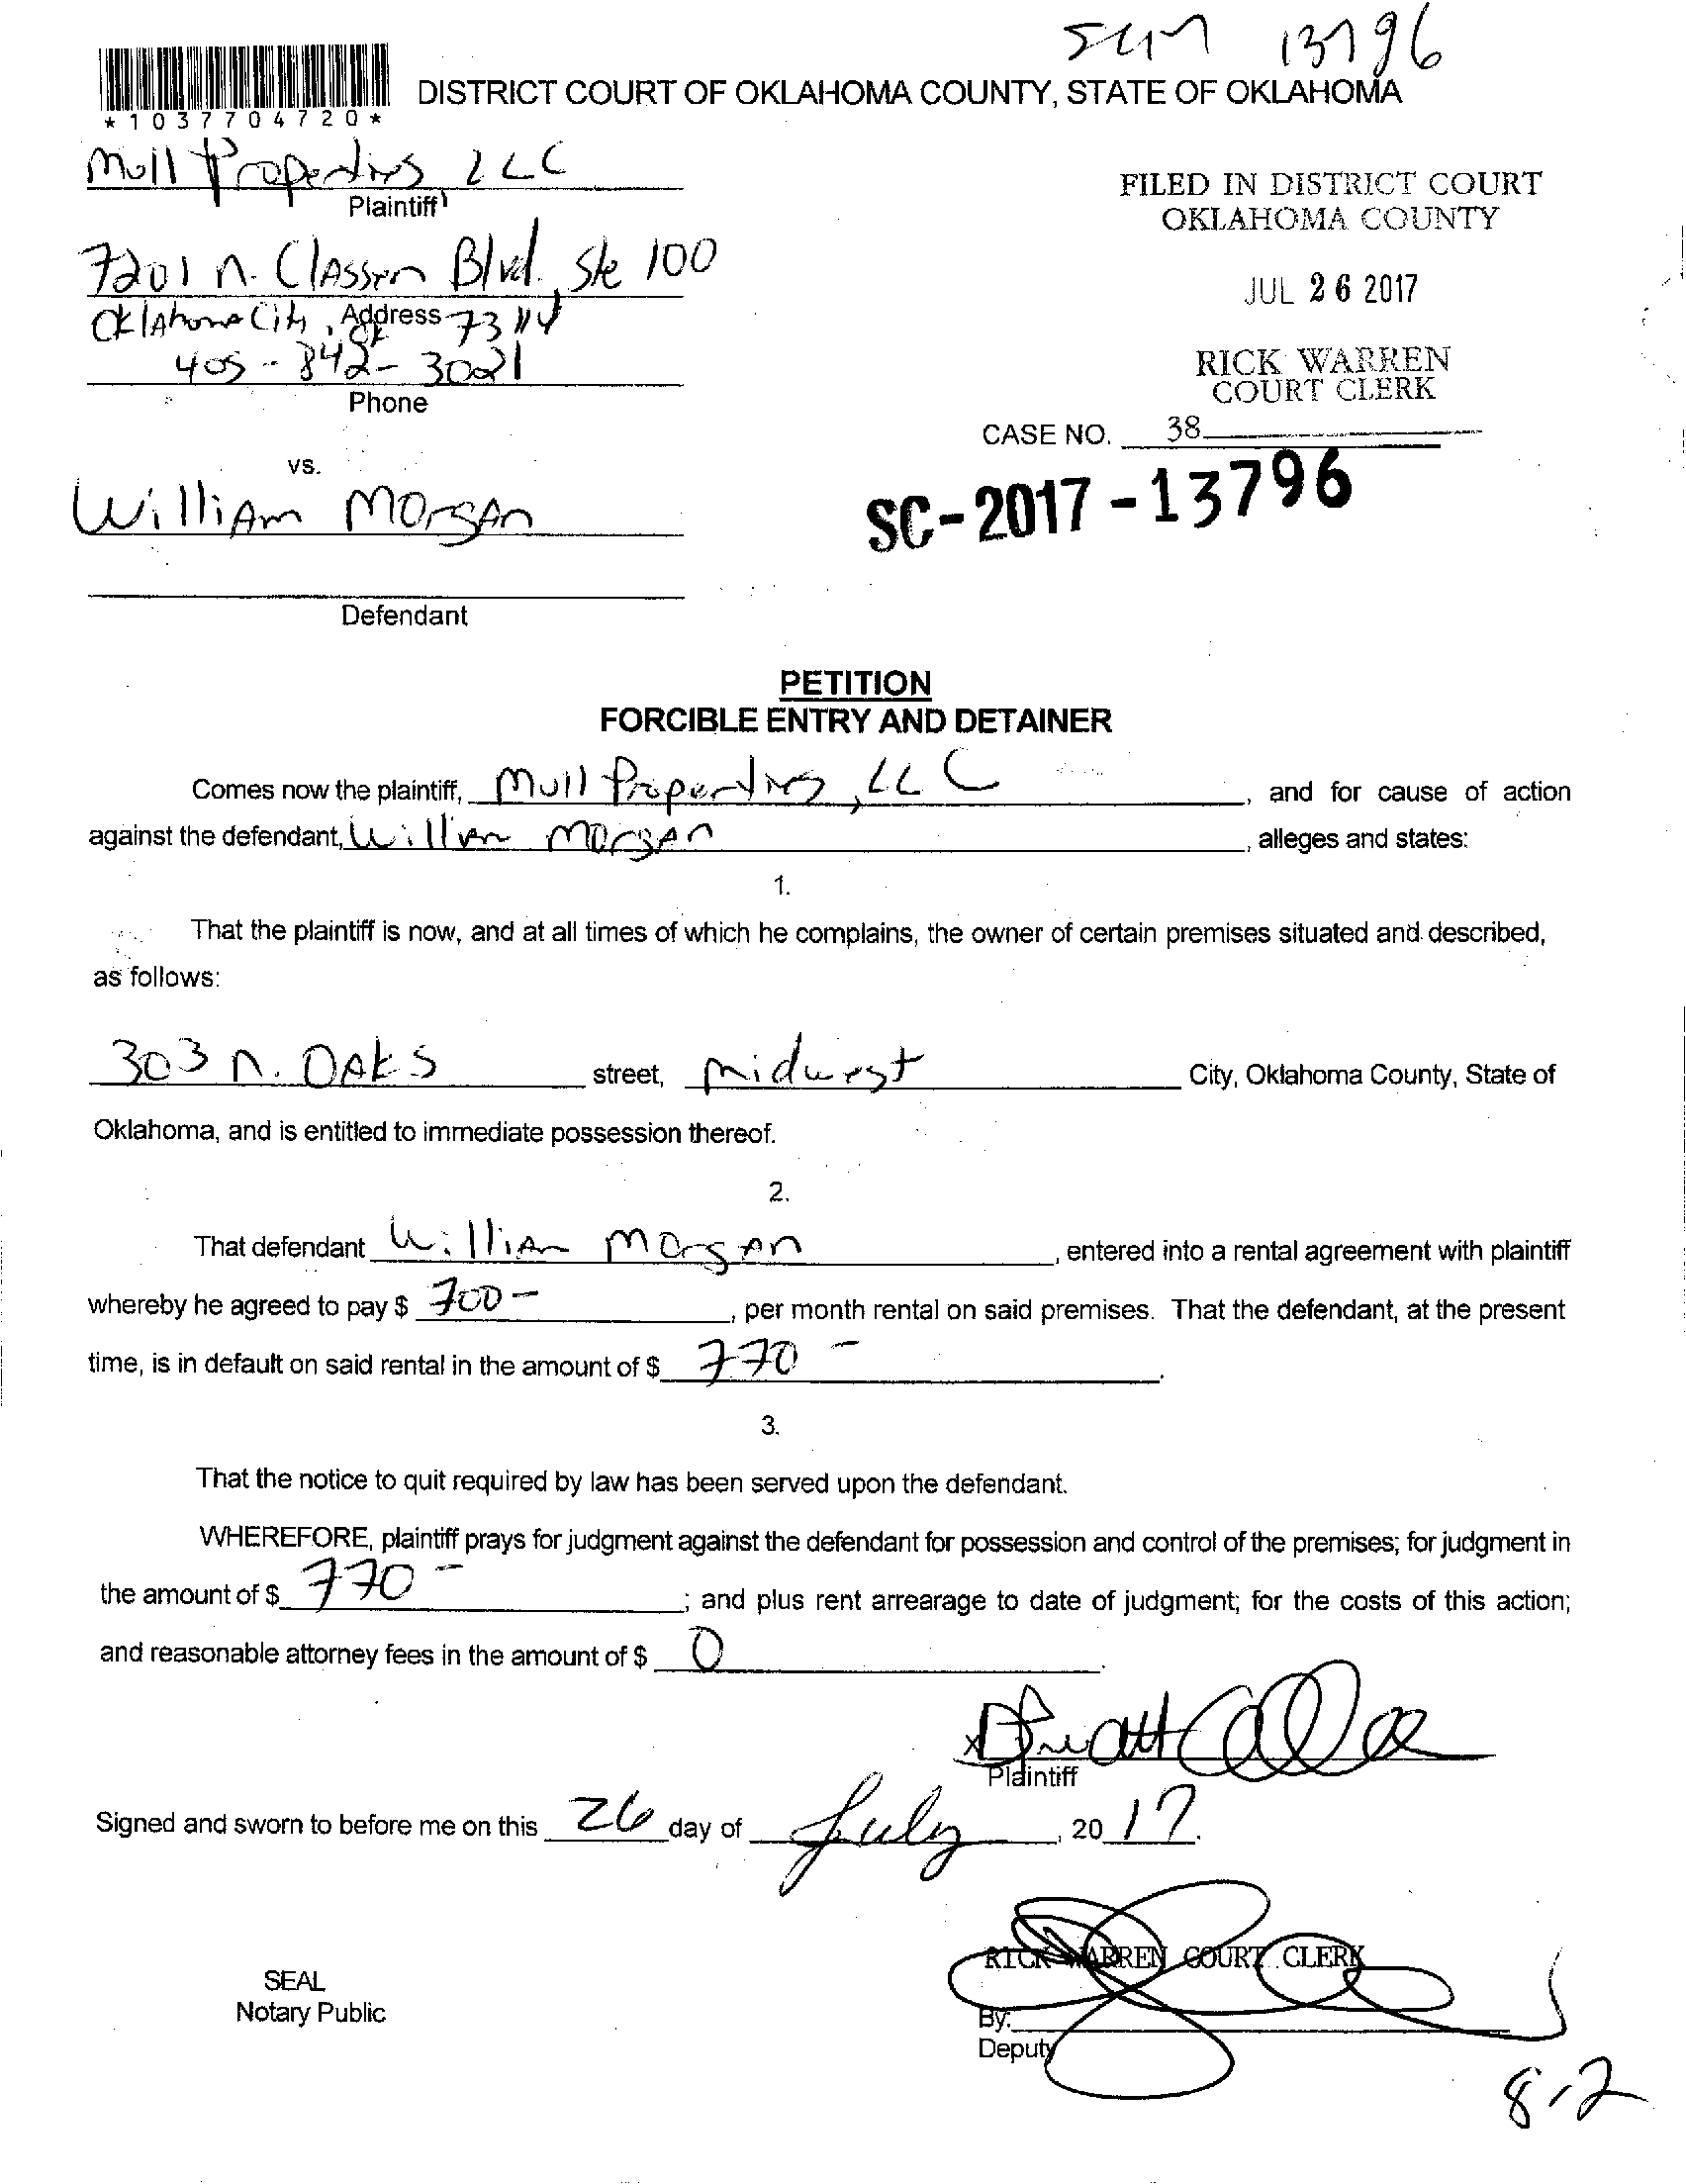 13796
DISTRICT COURT OF OKLAHOMA COUNTY, STATE OF OKLAHOMA
*1037704720*
Mull Properties, LLC
Plaintiff
FILED IN DISTRICT COURT
OKLAHOMA COUNTY
7201 N. Classen Blvd. Ste 100
JUL 26 2017
Oklahoma City, OK 73114
Address
405-842-3021
Phone
RICK WARREN
COURT CLERK
CASE NO. 38
vs.
William Morgan
SC-2017-13796
Defendant
PETITION
FORCIBLE ENTRY AND DETAINER
Comes now the plaintiff, Mull Properties, LLC, and for cause of action
against the defendant, William Morgan, alleges and states:
1.
That the plaintiff is now, and at all times of which he complains, the owner of certain premises situated and described,
as follows:
303 N. Oaks street, Midwest City, Oklahoma County, State of
Oklahoma, and is entitled to immediate possession thereof.
2.
That defendant William Morgan, entered into a rental agreement with plaintiff
whereby he agreed to pay $ 700-, per month rental on said premises. That the defendant, at the present
time, is in default on said rental in the amount of $ 770-.
3.
That the notice to quit required by law has been served upon the defendant.
WHEREFORE, plaintiff prays for judgment against the defendant for possession and control of the premises; for judgment in
the amount of $ 770-; and plus rent arrearage to date of judgment; for the costs of this action;
and reasonable attorney fees in the amount of $ 0.
x
Plaintiff
Signed and sworn to before me on this 26 day of July, 2017.
RICK WARREN COURT CLERK
SEAL
Notary Public
By:
Deputy
8-2